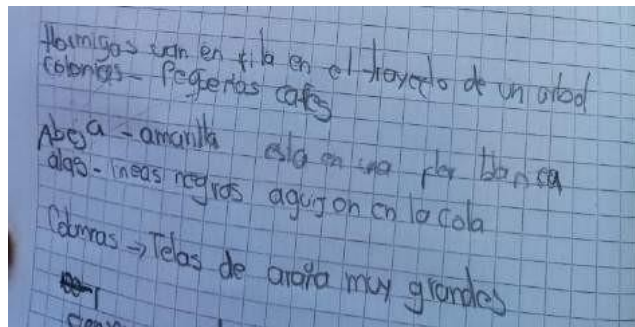 Hormigas van en fila en el trayecto de un arbol
colonias - Pequeñas cafes
Abeja - amarilla esta en una flor blanca
alas - lineas negras aguijon en la cola
→ Telas de araña muy grandes